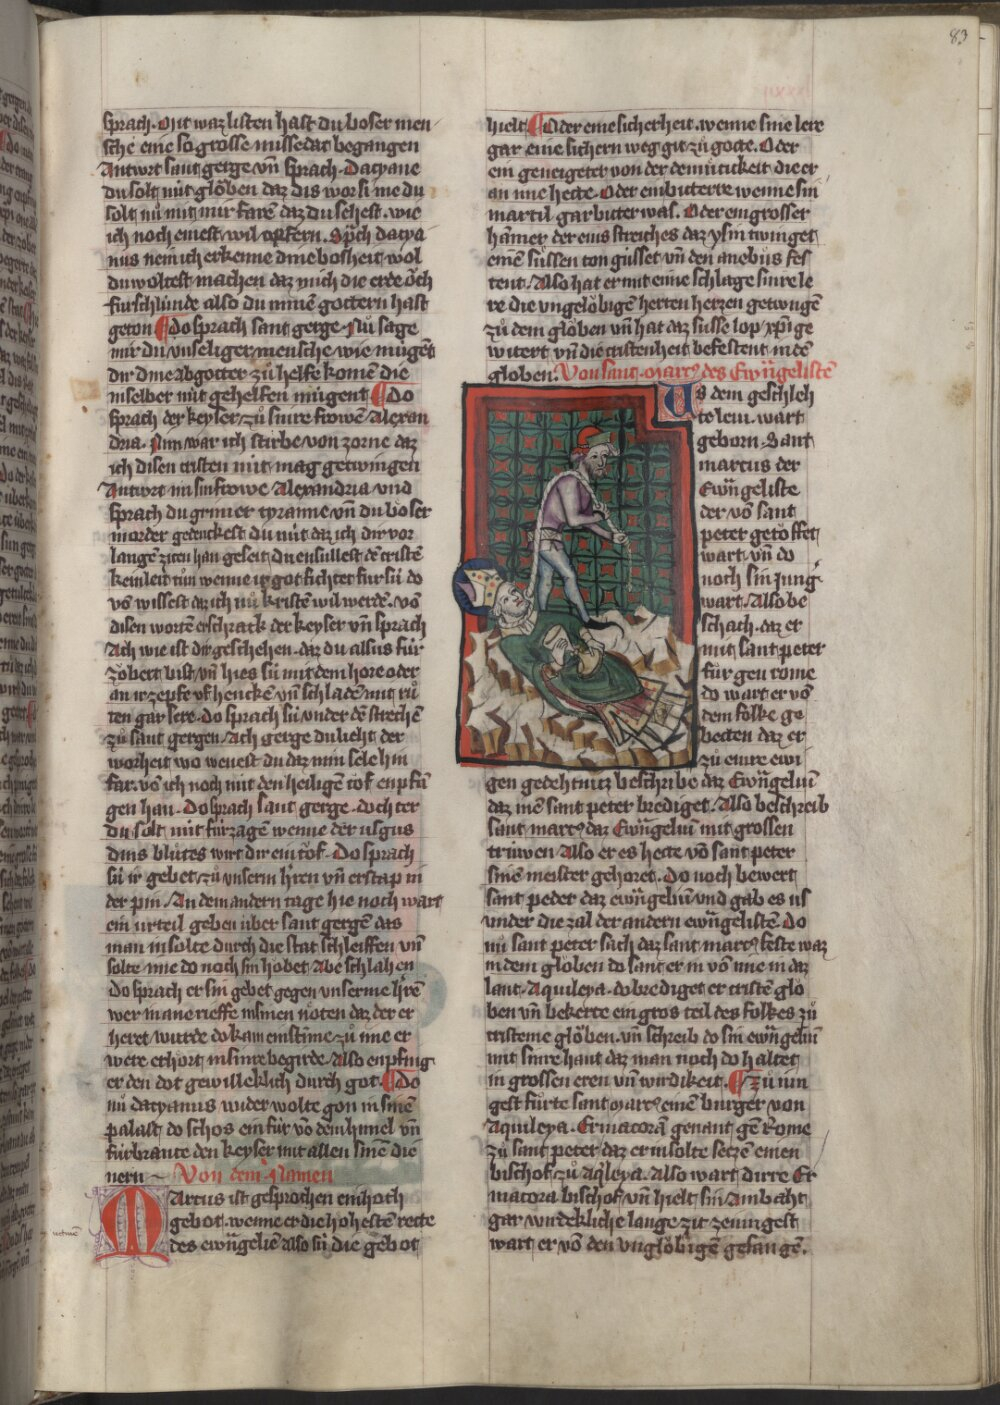 83
sprach. Mit waz listen hast du boser men
sche eine so grosse missedat begangen
Antwort sant gerge vn̄ sprach. Dacyane
du solt nüt glöben daz dis wor si me du
solt nu mit mir farē daz du sehest. wie
ich noch einest wil opfern. Sp̄ch dacya
nus nein ich erkenne dine bosheit wol
du woltest machen daz mich die erde öch
furschlünde also du minē göttern hast
geton Do sprach sant gerge. Nu sage
mir du vnseliger mensche wie mügent
dir dine abgötter zů helfe komē die
in selber nüt gehelfen mügent Do
sprach der keyser zů sinre frowē Alexan
dria. Nim war ich stirbe von zorne daz
ich disen cristen nüt mag getwingen
Antwort im sin frowe Alexandria vnd
sprach du grimer tyranne vn̄ du böser
morder gedenckest du nüt daz ich dir vor
langē ziten han geseit du ensullest dē cristē
kein leit tůn wenne ir got fichtet für sü do
vō wissest daz ich nu kristē wil werdē. vō
disen wortē erschrack der keyser vn̄ sprach
Ach wie ist dir geschehen. daz du alsus für
zöbert bist vn̄ hies sü mit dem hore oder
an ir zepfe vf henckē vn̄ schladē mit rů
ten gar sere. do sprach sü vnder dē strechē
zů sant gergen. Ach gerge du lieht der
worheit wo wenest du daz min sele hin
far. vō ich noch nüt den heiligē tof enpfā
gen han. Do sprach sant gerge. dochter
du solt nüt fürzagē wenne der usgus
dins blůtes wirt dir ein tof. Do sprach
sü ir gebet zů vnserm h̄ren vn̄ erstarp in
der pin. An dem andern tage hie noch wart
ein urteil geben über sant gergē das
man in solte durch die stat schleiffen vn̄
solte ime do noch sin hobet abe schlahen
do sprach er sin gebet gegen vnserme h̄rē
wer in anerieffe in sinen nöten daz der er
heret wurde do kam ein stime zů ime er
were erhort in sinre begirde. Also enpfing
er den dot gewilleklich durch got. Do
nu dacyanus wider wolte gon in sinē
palast do schos ein für vō dem himel vn̄
fürbrante den keyser mit allen sinē die
nern Von dem Namen
Marcus ist gesprochen ein hoch
gebot. wenne er die hohesten rette
des ewāgeliē also sü die gebot
hielt Oder eine sicherheit. wenne sine lere
gar eine sichern weg git zů gotte. Oder
ein geneigeter von der demütikeit die er
an ime hette. Oder ein bitterre wenne sin
martil gar bitter was. Oder ein grosser
hāmer der eins streiches daz ysin twinget
einē süssen ton gusset vn̄ den anebůs fes
tent. Also hat er mit eine schlage sinre le
re die vngelöbigē herten herzen getwūgē
zů dem glöben vn̄ hat daz süsse lop xp̄i ge
witert vn̄ die cristenheit befestent in dē
globen. Von sant Marcꝰ des Ewāgelistē
Us dem geschleh
te leui. wart
geborn. Sant
marcus der
Ewāgeliste
der vō sant
peter getöffet
wart. vn̄ do
noch sin Jung᾽
wart. Also be
schach. daz er
mit sant peter
für gen rome
do wart er vō
dem folke ge
betten daz er
zů einre ewi
gen gedehtnuz beschribe daz Ewāgeliū
daz inē sant peter brediget. Also beschreib
sant marcꝰ daz Ewāgeliū mit grossen
trüwen Also er es hette vō sant peter
sinē meister gehoret. Do noch bewert
sant peder daz ewāgeliū vnd gab es us
vnder die zal der andern ewāgelistē. Do
nu sant peter sach daz sant marcꝰ feste waz
in dem globen do sant er in vō ime in daz
lant Aquileya. do brediget er cristē glö
ben vn̄ bekerte ein gros teil des folkes zů
cristeme glöben. vn̄ schreib do sin ewāgeliū
mit sinre hant daz man noch do haltet
in grossen eren vn̄ wirdikeit. Zů iun
gest fürte sant Marcꝰ einē burger von
Aquileya. Ermacorā genant gē Rome
zů sant peter daz er in solte setzē einen
bischof zů Aq̇leya. Also wart dirre Er
macora bischof vn̄ hielt sin Ambaht
gar wirdekliche lange zit zeiungest
wart er vō den vnglöbigē gefangē.